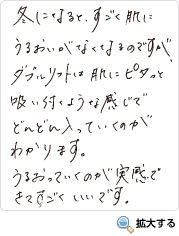 冬になると、すごく肌に
うるおいがなくなるのですが、
ダブルリフトは肌にピタっと
吸い付くような感じで
どんどん入っていくのが
わかります。
うるおっていくのが実感で
きてすごくいいです。
拡大する